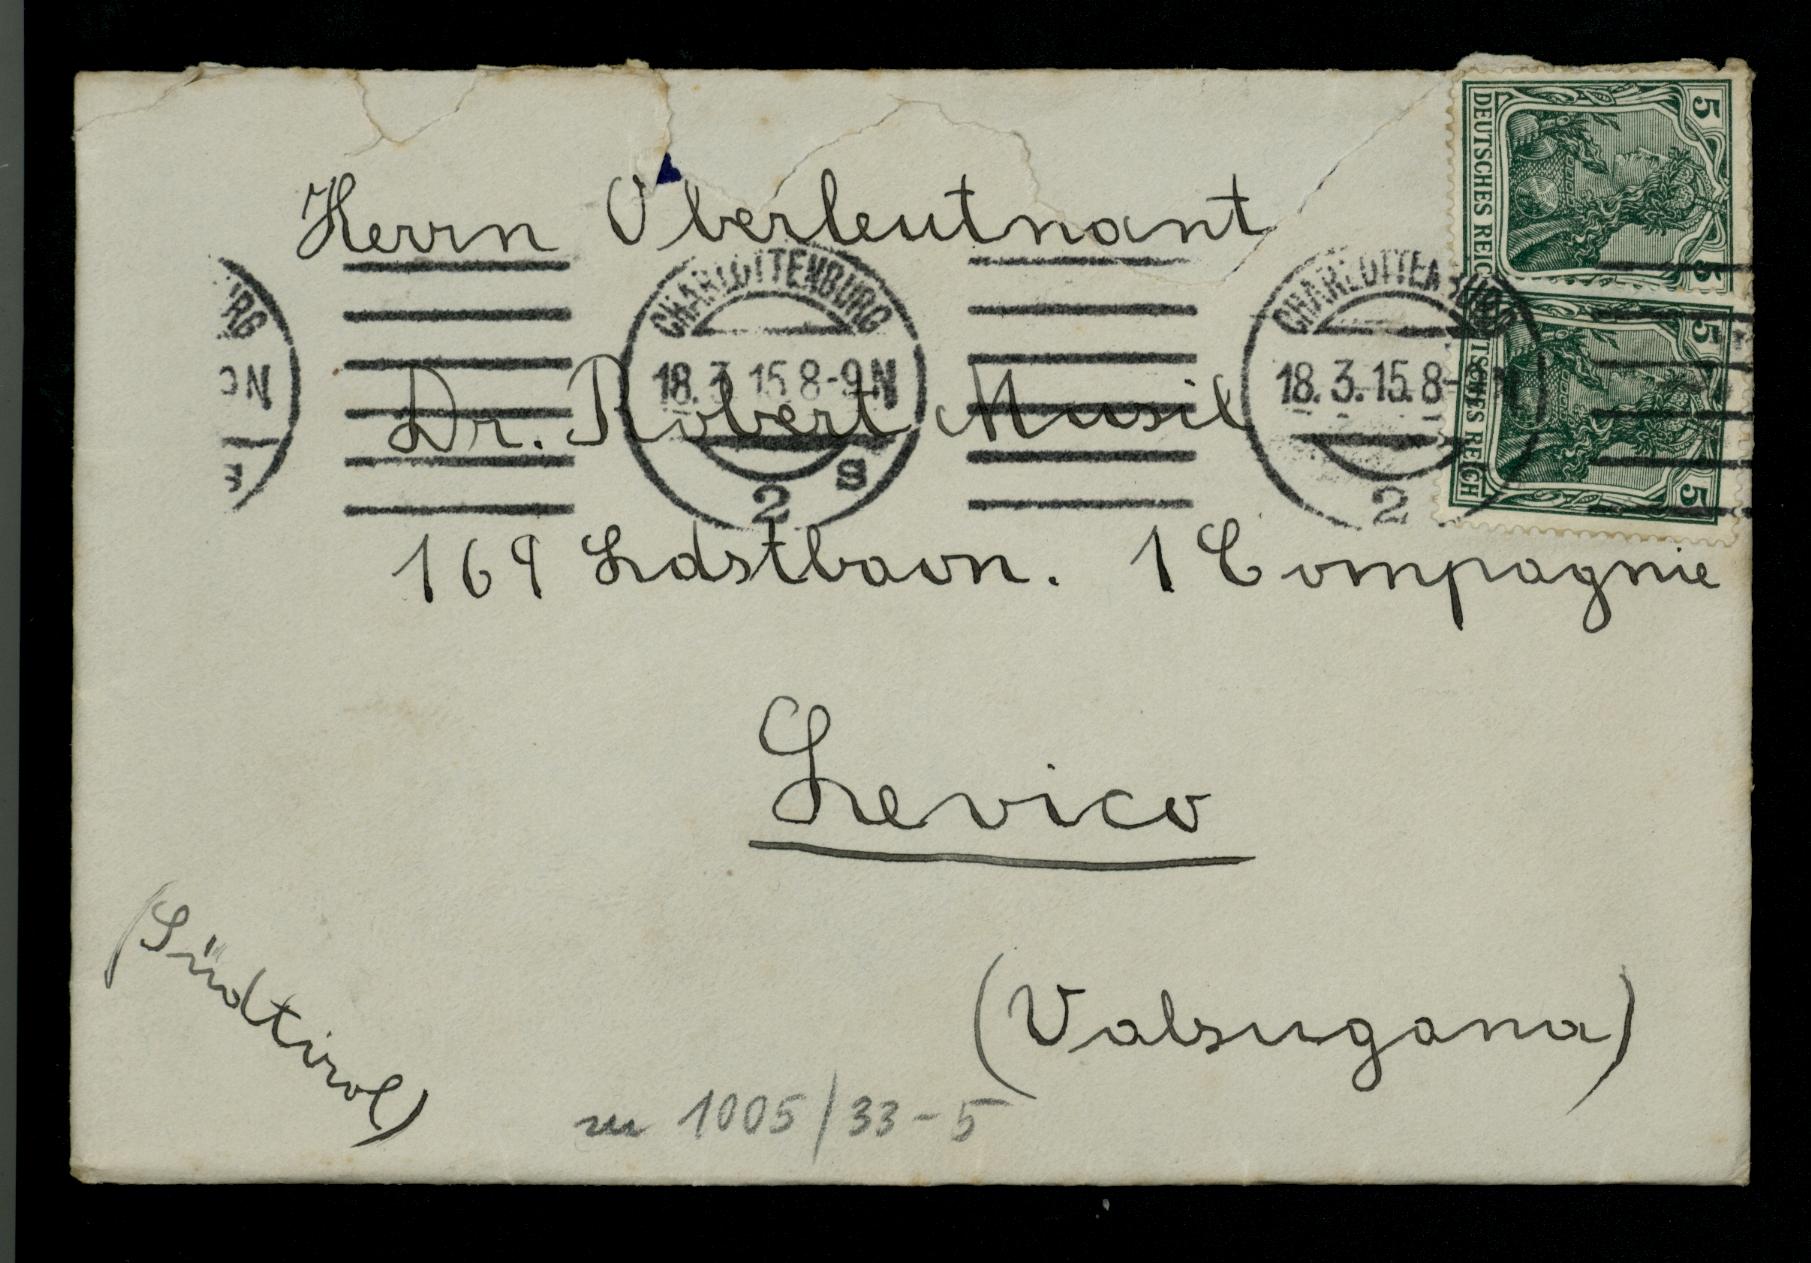 Herrn Oberleutnant
Dr. Robert Musil
169 Ldstbaon. 1 Compagnie
Levico
(Valsugana)
(Südtirol)
zu 1005/33-5
CHARLOTTENBURG
18.3.15.8-9N
2 s
CHARLOTTENBURG
18.3.15.8-N
2
RG
N
5 5
DEUTSCHES REICH
5 5
DEUTSCHES REICH